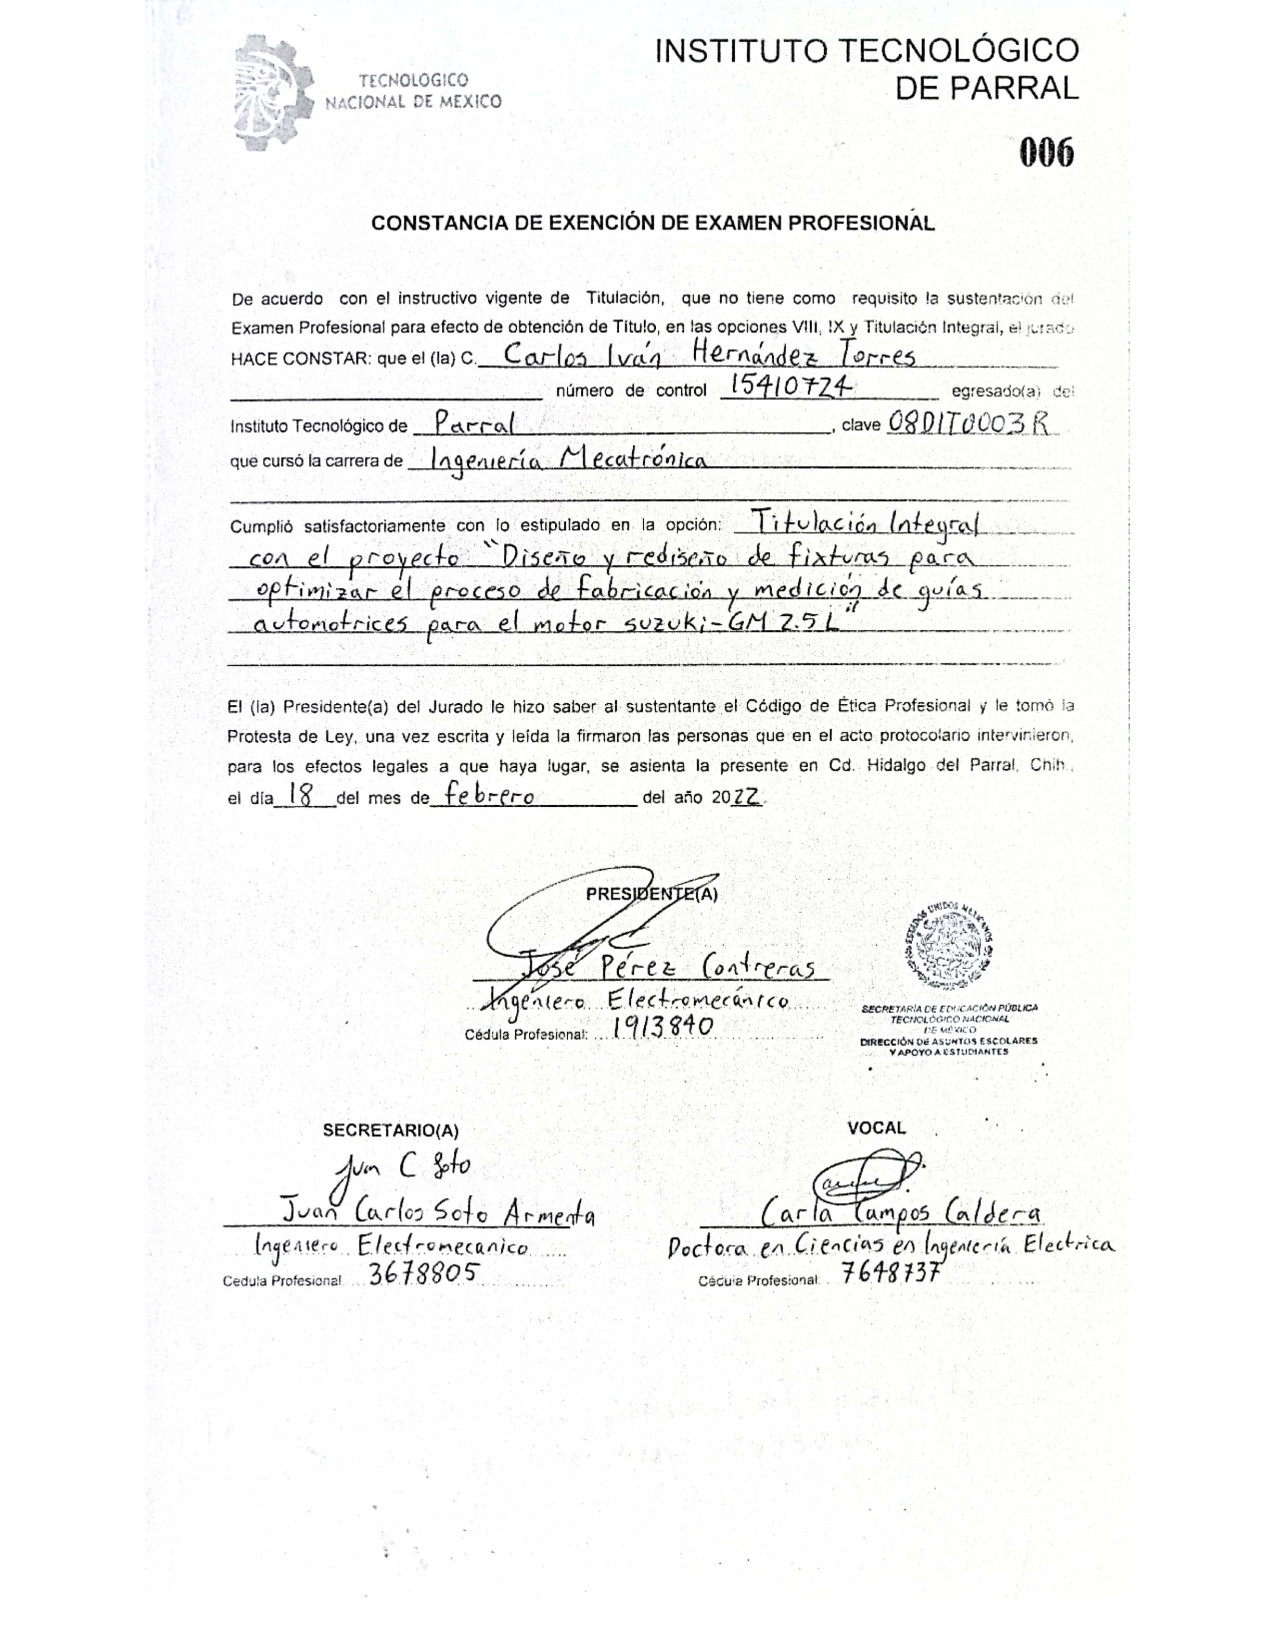 TECNOLOGICO
NACIONAL DE MEXICO
INSTITUTO TECNOLÓGICO
DE PARRAL
006
CONSTANCIA DE EXENCIÓN DE EXAMEN PROFESIONAL
De acuerdo con el instructivo vigente de Titulación, que no tiene como requisito la sustentación del
Examen Profesional para efecto de obtención de Título, en las opciones VIII, IX y Titulación Integral, el jurado
HACE CONSTAR: que el (la) C. Carlos Iván Hernández Torres
número de control 15410724 egresado(a) del
Instituto Tecnológico de Parral, clave 08DIT0003R
que cursó la carrera de Ingeniería Mecatrónica
Cumplió satisfactoriamente con lo estipulado en la opción: Titulación Integral
con el proyecto "Diseño y rediseño de fixturas para
optimizar el proceso de fabricación y medición de guías
automotrices para el motor suzuki-GM 2.5L"
El (la) Presidente(a) del Jurado le hizo saber al sustentante el Código de Ética Profesional y le tomó la
Protesta de Ley, una vez escrita y leída la firmaron las personas que en el acto protocolario intervinieron,
para los efectos legales a que haya lugar, se asienta la presente en Cd. Hidalgo del Parral, Chih.,
el día 18 del mes de febrero del año 2022.
PRESIDENTE(A)
José Pérez Contreras
Ingeniero Electromecánico
Cédula Profesional: 1913840
ESTADOS UNIDOS MEXICANOS
SECRETARÍA DE EDUCACIÓN PÚBLICA
TECNOLÓGICO NACIONAL
DE MÉXICO
DIRECCIÓN DE ASUNTOS ESCOLARES
Y APOYO A ESTUDIANTES
SECRETARIO(A)
Juan C Soto
Juan Carlos Soto Armenta
Ingeniero Electromecanico
Cedula Profesional 3678805
VOCAL
Carla Campos Caldera
Doctora en Ciencias en Ingeniería Electrica
Cédula Profesional 7648737